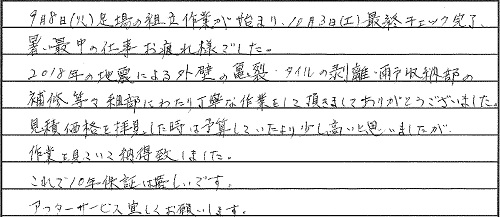 9月8日(火)足場の組立作業が始まり、10月3日(土)最終チェック完了、
暑い最中の仕事お疲れ様でした。
2018年の地震による外壁の亀裂・タイルの剥離・雨戸収納部の
補修等々細部にわたり丁寧な作業をして頂きましてありがとうございました。
見積価格を拝見した時は予算していたより少し高いと思いましたが
作業を見ていて納得致しました。
これで10年保証は嬉しいです。
アフターサービス宜しくお願いします。